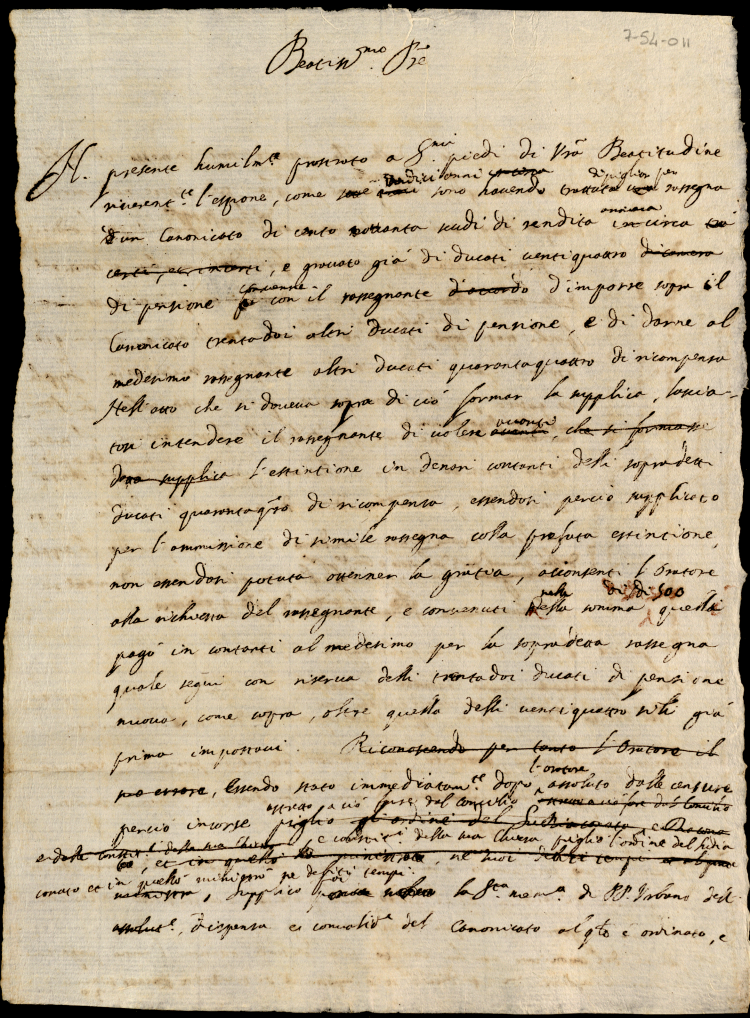 7-54-011
Beatiss.mo P're
Il presente humilm.te prostrato a s.mi piedi di V'ra Beatitudine
riverent.te l'espone, come undici anni sono havendo trattato di pigliar per rassegna
un Canonicato di cento novanta scudi di rendita in circa
certi, et incerti, e gravato già di ducati ventiquattro di camera
di pensione convenne con il rassegnante d'accordo d'imporre sopra il
Canonicato trentadoi altri ducati di pensione, e di darne al
medesimo rassegnante altri ducati quarantaquattro di ricompensa
Nell'atto che si doveva sopra di ciò formar la supplica, lascia-
tosi intendere il rassegnante di volere avanti, che si formasse
detta supplica l'estintione in denari contanti delli sopradetti
ducati quarantaq'ro di ricompensa, essendosi perciò supplicato
per l'ammissione di simile rassegna colla prefata estintione,
non essendosi potuta ottenner la gratia, acconsentì l'Oratore
alla richiesta del rassegnante, e convenuti nella somma di sc.di 500 quelli
pagò in contanti al medesimo per la sopradetta rassegna
quale seguì con riserva delli trentadoi ducati di pensione
nuova, come sopra, oltre quella delli ventiquattro simili già
prima impostavi. Riconoscendo per tanto l'Oratore il
suo errore, Essendo stato immediatam.te dopo l'oratore assoluto dalle censure
perciò incorse pigliò gl'ordine del Sudiaconato, e
e const.i della sua Chiesa pigliò l'ordine del sudia
conato et in quello ministrò ne debiti tempi.
supplicò la S.ta mem.a di PP. Urbano dell'
assolut.e, dispensa e convalid.e del Canonicato al q'le è ordinato, e